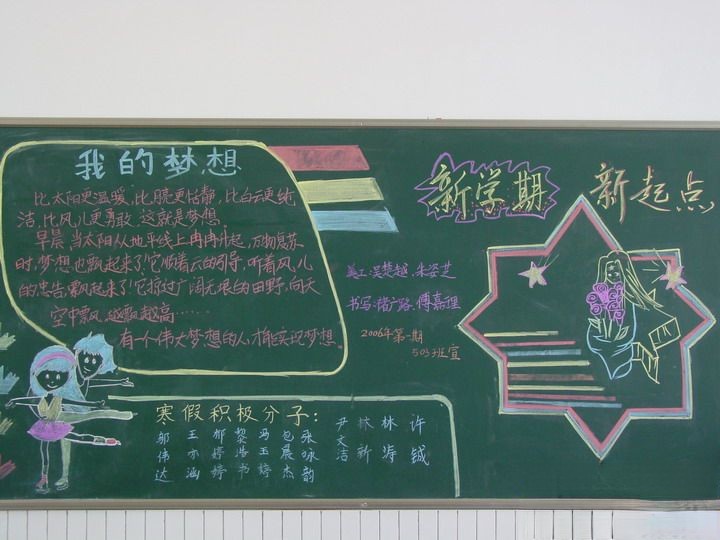 我的梦想
比太阳更温暖,比更恬静,比白云更纯
洁,比风儿更勇敢,这就是梦想。
早晨,当太阳从地平线上冉冉升起,万物复苏
时,梦想也飘起来了!它顺着云的引导,听着风儿
的忠告,飘起来了!它掠过广阔无垠的田野,向天
空中飘,越飘越高……
有一个伟大梦想的人,才能实现梦想。
新学期 新起点
美工:吴楚超、朱姿芝
书写:广路、傅嘉理
2006年第一期
503班宣
寒假积极分子:
邬伟达
王亦涵
郁婷婷
黎浩书
冯玉婷
包晨杰
张咏韵
尹文洁
林新
林涛
许铖